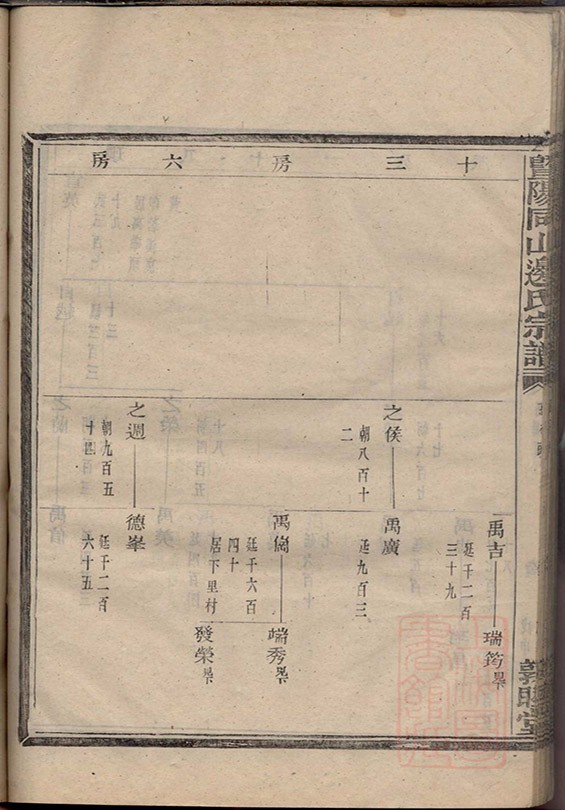 暨陽同山邊氏宗譜
十三房六房
禹吉
廷千二百
三十九
瑞筠
之侯
朝八百十
二
禹廣
廷九百三
禹偷
廷千六百
四十
居下里村
瑞秀
發榮
之週
朝九百五
十四
德峯
廷千二百
六十五